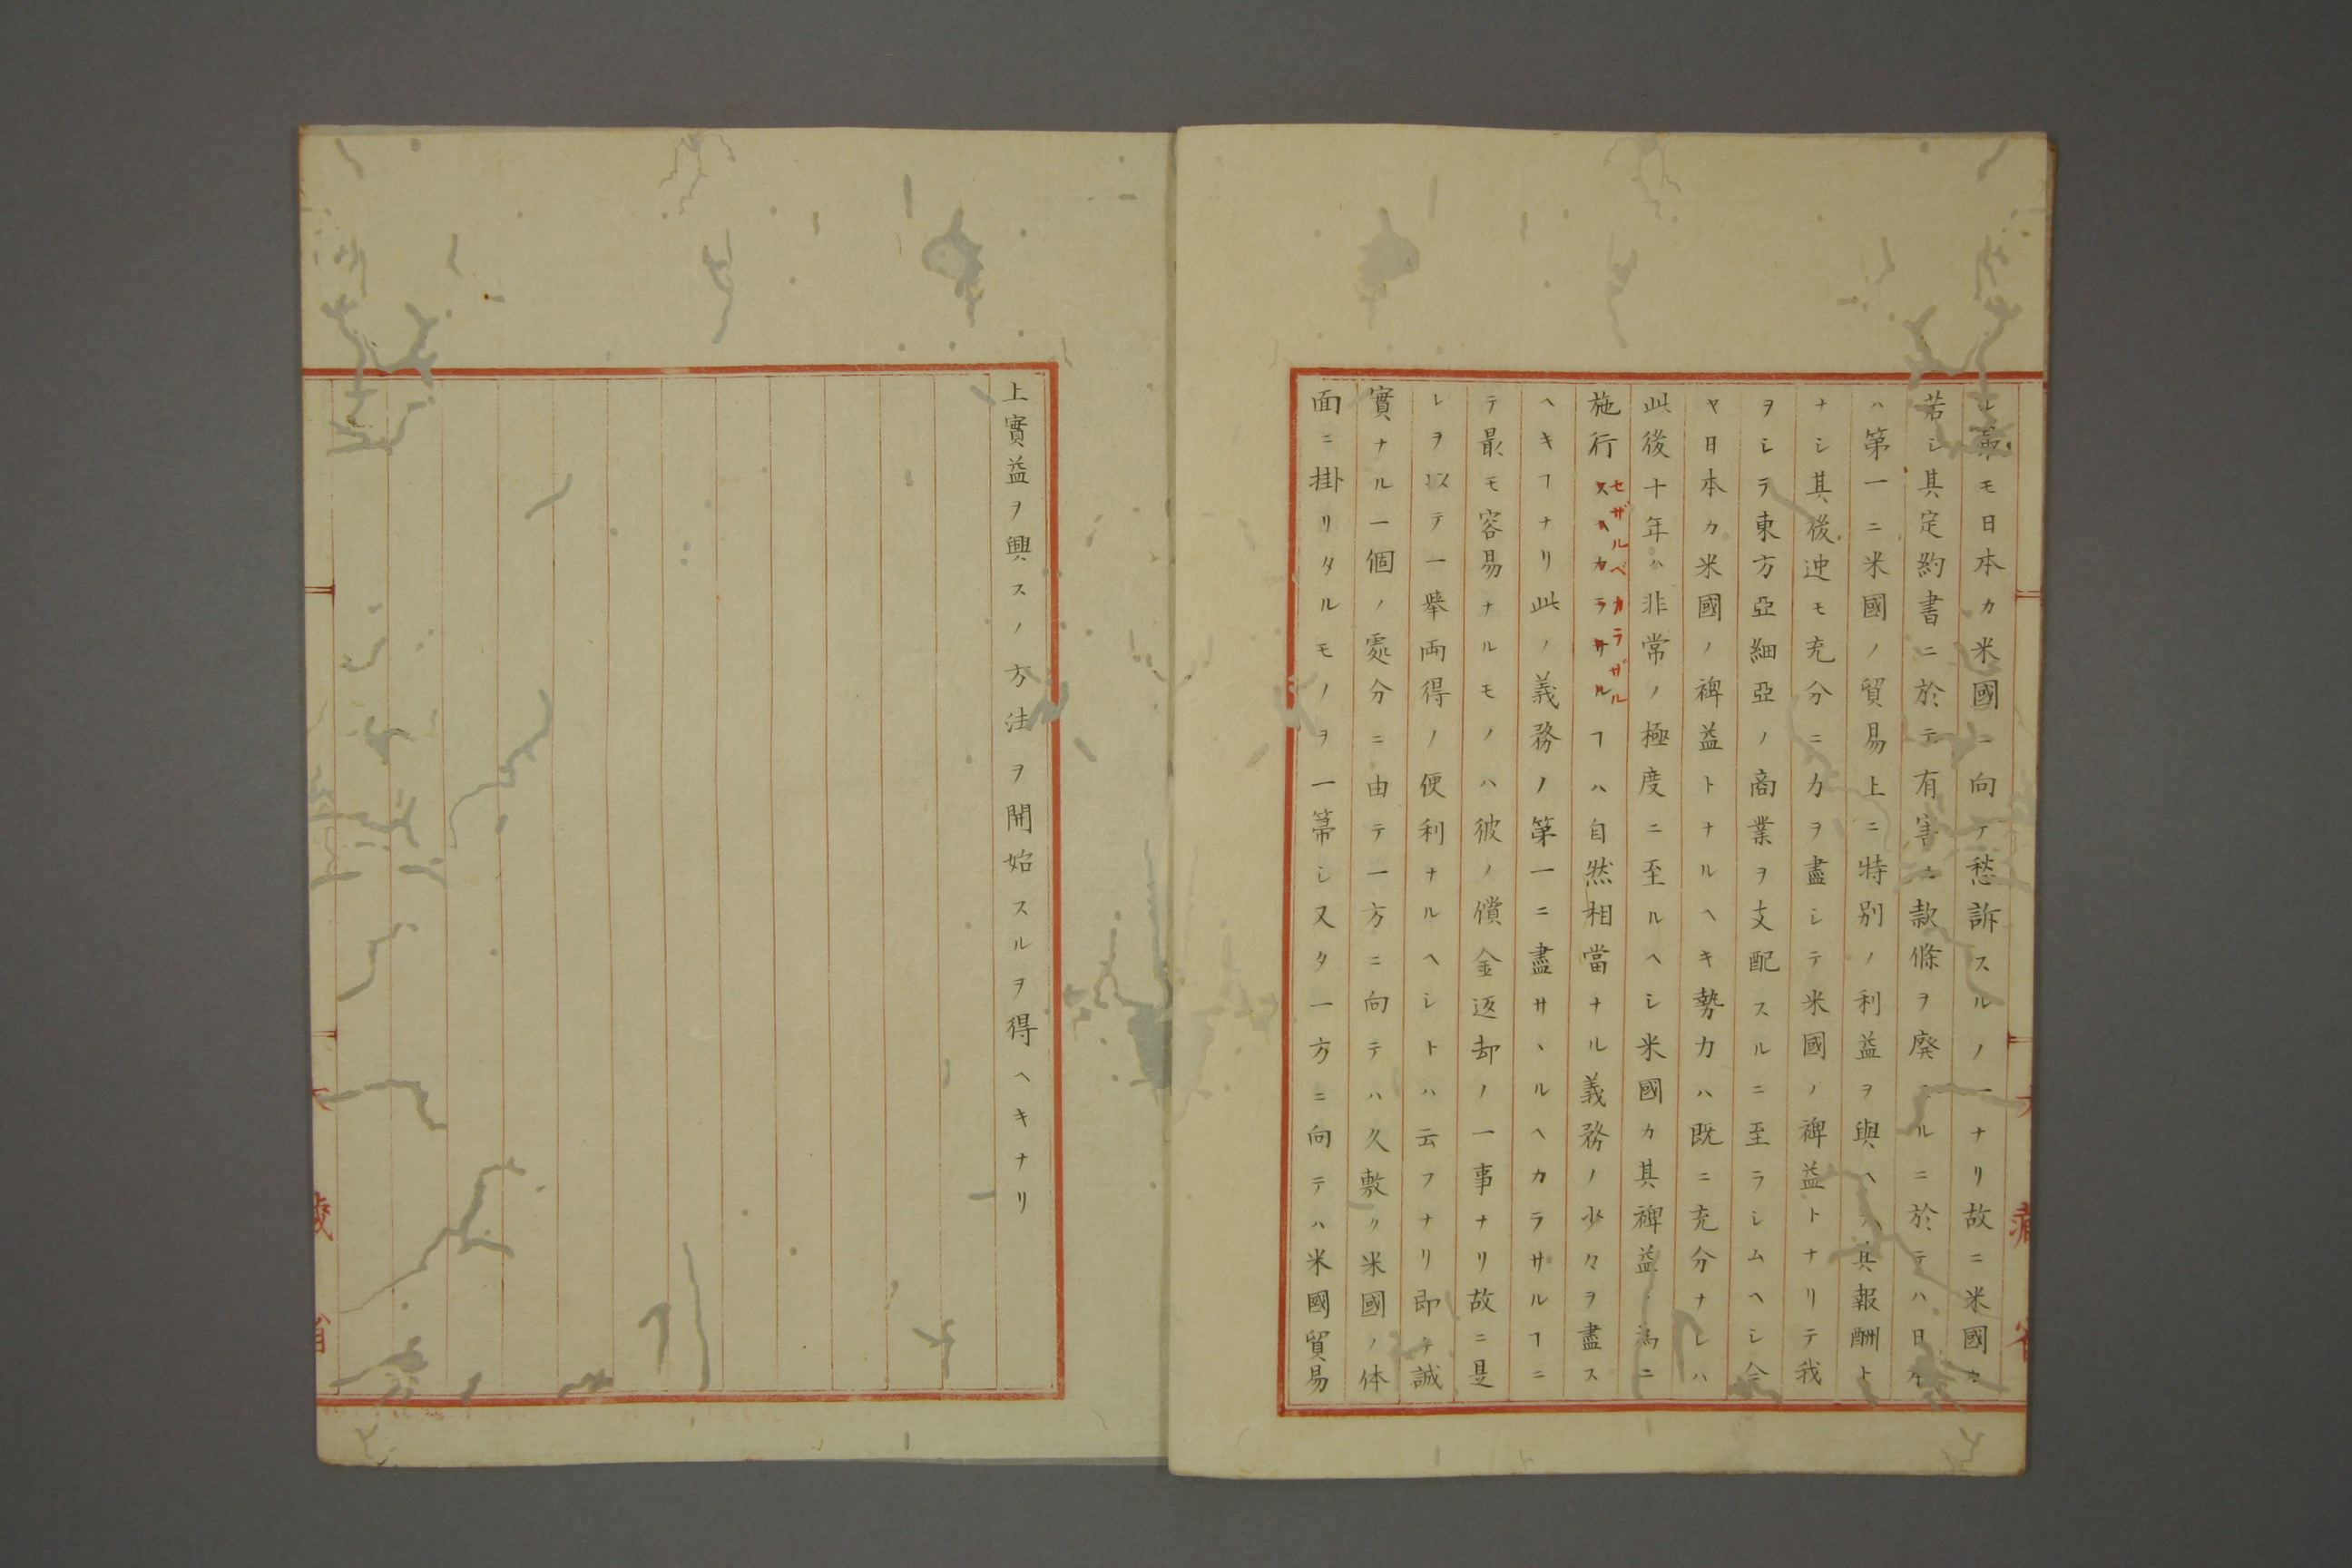 モ日本カ米國ニ向テ愁訴スルノ一ナリ故ニ米國カ
若シ其定約書ニ於テ有害ノ款條ヲ廃スルニ於テハ日本
ハ第一ニ米國ノ貿易上ニ特別ノ利益ヲ與ヘ其報酬ト
ナシ其後迚モ充分ニ力ヲ盡シテ米國ノ裨益トナリテ我
ヲシテ東方亞細亞ノ商業ヲ支配スルニ至ラシムヘシ今
ヤ日本カ米國ノ裨益トナルヘキ勢力ハ既ニ充分ナレハ
此後十年ハ非常ノ極度ニ至ルヘシ米國カ其裨益ノ為ニ
施行スヘカラサルヿハ自然相當ナル義務ノ少々ヲ盡ス
セザルベカラザル
ヘキヿナリ此ノ義務ノ第一ニ盡サヽルヘカラサルヿニ
テ最モ容易ナルモノハ彼ノ償金返却ノ一事ナリ故ニ是
レヲ以テ一舉両得ノ便利ナルヘシトハ云フナリ即チ誠
實ナル一個ノ處分ニ由テ一方ニ向テハ久敷ク米國ノ体
面ニ掛リタルモノヲ一箒シ又タ一方ニ向テハ米國貿易
上實益ヲ興スノ方法ヲ開始スルヲ得ヘキナリ